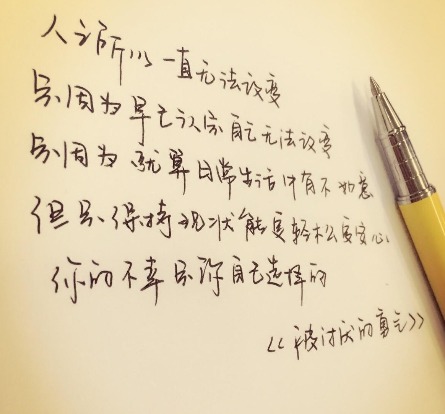 人之所以一直无法改变
是因为早已认定自己无法改变
是因为就算日常生活中有不如意
但是保持现状能更轻松更安心
你的不幸是你自己选择的
《被讨厌的勇气》